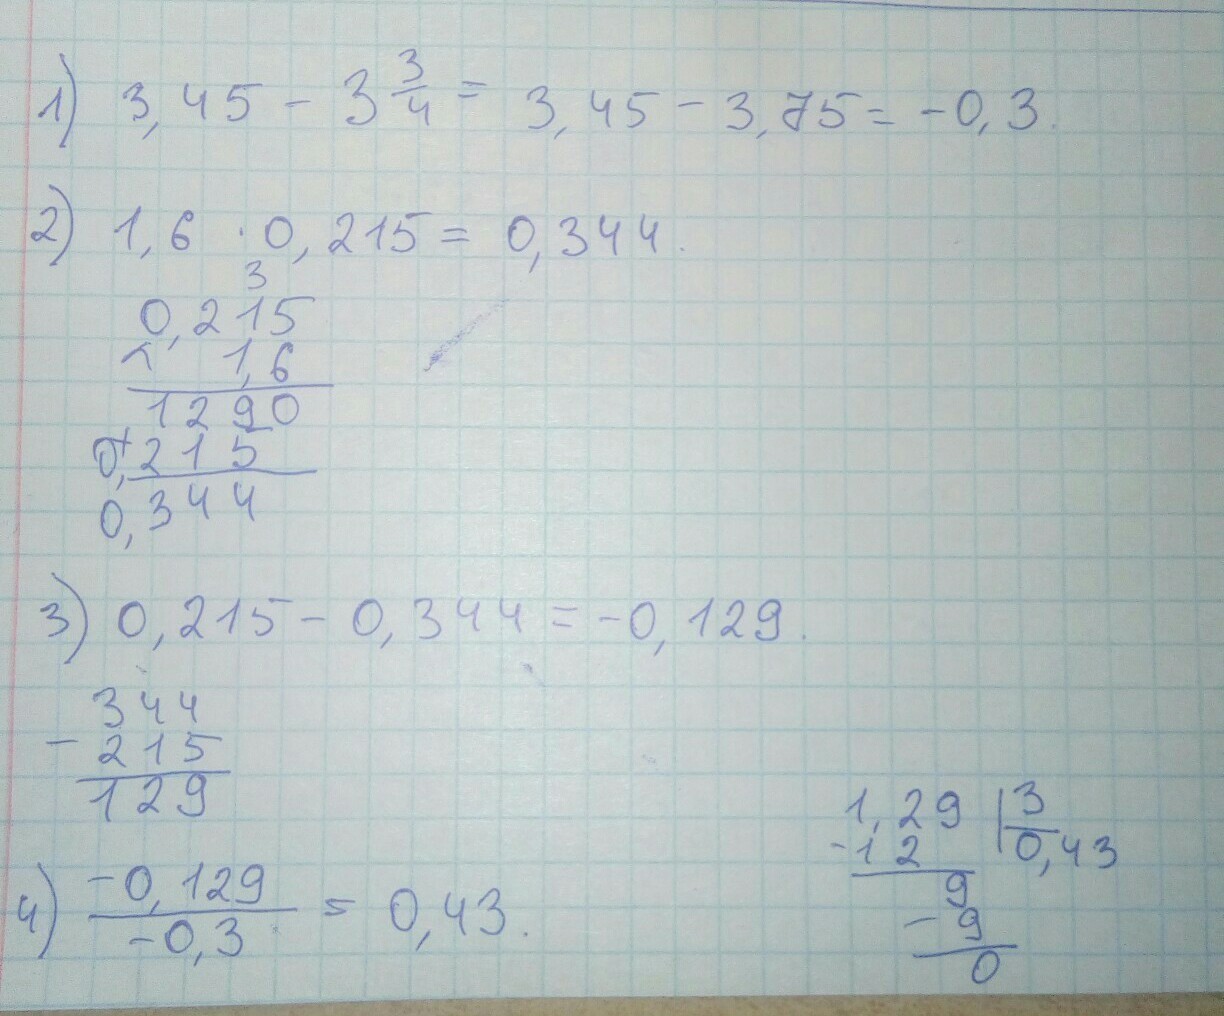 1) 3,45 - 3 3/4 = 3,45 - 3,75 = -0,3.
2) 1,6 · 0,215 = 0,344.
3
0,215
× 1,6
1290
+
0,215
0,344
3) 0,215 - 0,344 = -0,129.
344
- 215
129
4) -0,129 / -0,3 = 0,43.
1,29 | 3
-12 | 0,43
9
- 9
0